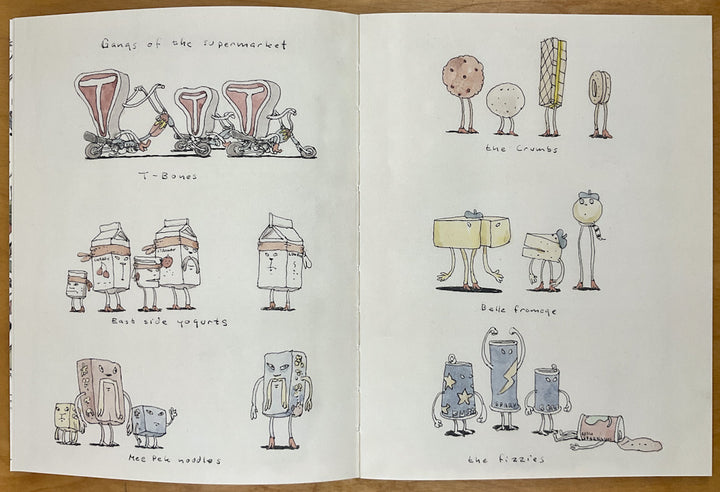 Gangs of the supermarket
T-Bones
East side yogurts
Mee Pek noodles
the Crumbs
Belle fromage
the fizzies